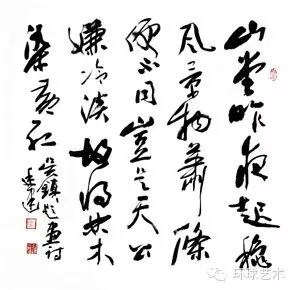 山堂昨夜起秋
风景物萧條
便不同豈是天公
嫌冷淡故将林木
染黄红
吴鎮题画诗
环球艺术